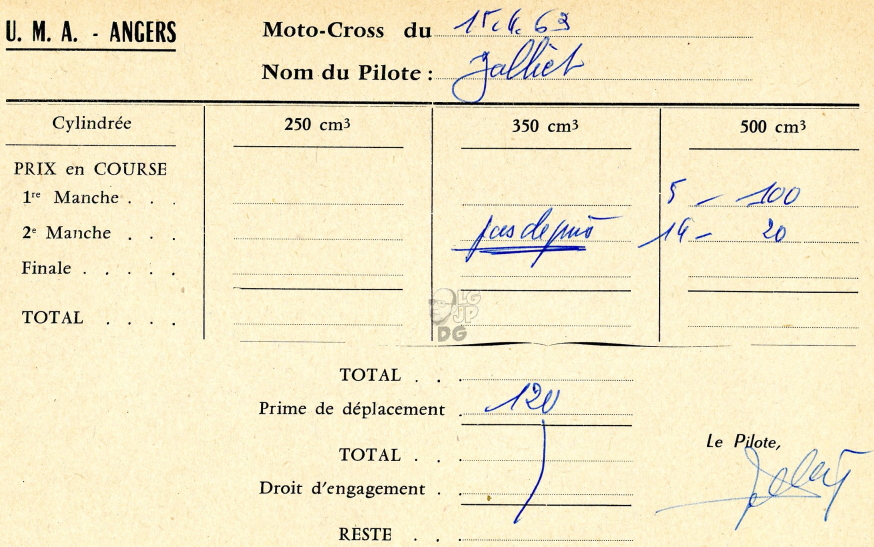 U. M. A. - ANGERS
Moto-Cross du 15.4.63
Nom du Pilote :
Cylindrée 250 cm³ 350 cm³ 500 cm³
PRIX en COURSE
1re Manche . . . 5 - 100
2e Manche . . . pas de prix 14 - 20
Finale . . . . .
TOTAL . . . .
LG
JP
DG
TOTAL . .
Prime de déplacement . 120
Le Pilote,
TOTAL . .
Droit d'engagement .
RESTE . .